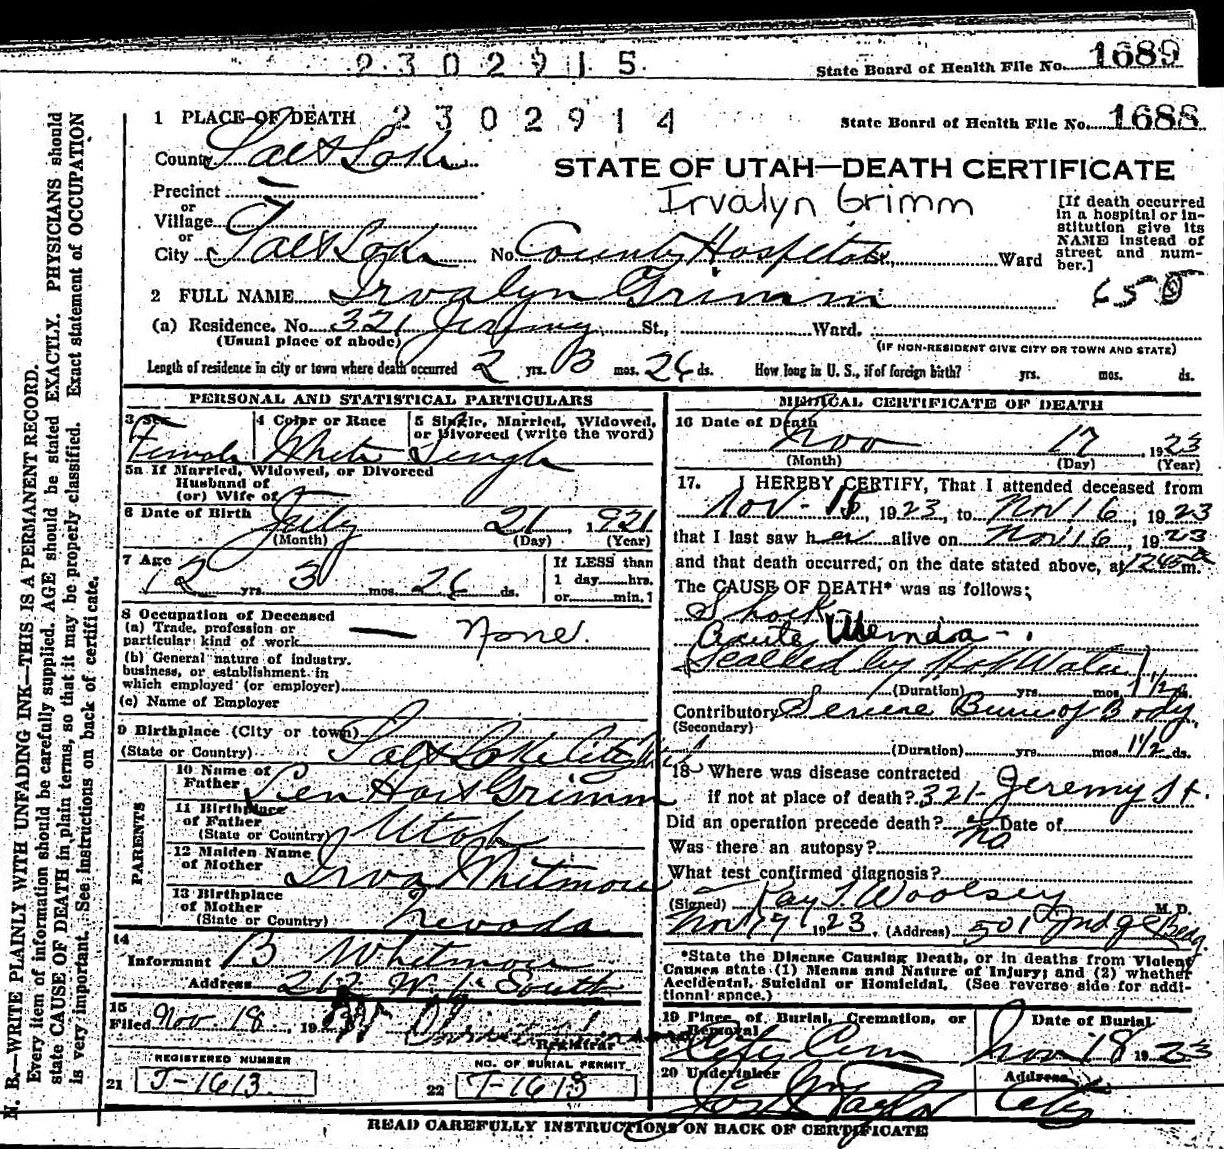 2302915 State Board of Health File No. 1689
1 PLACE OF DEATH 2302914 State Board of Health File No. 1688
County Salt Lake
STATE OF UTAH—DEATH CERTIFICATE
Precinct
Irvalyn Grimm
or
Village
or
City Salt Lake No. County Hospital, Ward
[If death occurred
in a hospital or in-
stitution give its
NAME instead of
street and num-
ber.]
2 FULL NAME Irvalyn Grimm
(a) Residence. No. 321 Jeremy St., Ward.
(Usual place of abode)
(IF NON-RESIDENT GIVE CITY OR TOWN AND STATE)
Length of residence in city or town where death occurred 2 yrs. 3 mos. 26 ds. How long in U. S., if of foreign birth? yrs. mos. ds.
PERSONAL AND STATISTICAL PARTICULARS
3 Sex
Female
4 Color or Race
White
5 Single, Married, Widowed,
or Divorced (write the word)
Single
5a If Married, Widowed, or Divorced
Husband of
(or) Wife of
6 Date of Birth July 21, 1921
(Month) (Day) (Year)
7 Age
2 yrs. 3 mos. 26 ds.
If LESS than
1 day hrs.
or min.?
8 Occupation of Deceased
(a) Trade, profession or
particular kind of work None.
(b) General nature of industry.
business, or establishment in
which employed (or employer)
(c) Name of Employer
9 Birthplace (City or town)
(State or Country) Salt Lake City
PARENTS
10 Name of
Father Hart Grimm
11 Birthplace
of Father
(State or Country) Utah
12 Maiden Name
of Mother Irva Whitmore
13 Birthplace
of Mother
(State or Country) Nevada
14
Informant B Whitmore
Address South
15
Filed Nov. 18, 19
Registrar
REGISTERED NUMBER
21 J-1613
NO. OF BURIAL PERMIT
22 J-1613
MEDICAL CERTIFICATE OF DEATH
16 Date of Death
Nov 17, 1923
(Month) (Day) (Year)
17. I HEREBY CERTIFY, That I attended deceased from
Nov - 15, 1923, to Nov 16, 1923
that I last saw her alive on Nov 16, 1923
and that death occurred, on the date stated above, at 1245 a m.
The CAUSE OF DEATH* was as follows:
Shock
Acute Uremia - .
(Scalded by Hot Water)
(Duration) yrs. mos. 1½ ds.
Contributory Severe Burn of Body
(Secondary)
(Duration) yrs. mos. 1½ ds.
18 Where was disease contracted
if not at place of death? 321- Jeremy St.
Did an operation precede death? No Date of
Was there an autopsy?
What test confirmed diagnosis?
(Signed) Ray T Woolsey M. D.
Nov 17 1923, (Address) 501 Judge Bldg.
*State the Disease Causing Death, or in deaths from Violent
Causes state (1) Means and Nature of Injury; and (2) whether
Accidental, Suicidal or Homicidal. (See reverse side for addi-
tional space.)
19 Place of Burial, Cremation, or
Removal
City Cem
Date of Burial
Nov 18 1923
20 Undertaker
Taylor
Address
City
READ CAREFULLY INSTRUCTIONS ON BACK OF CERTIFICATE
N. B.—WRITE PLAINLY WITH UNFADING INK—THIS IS A PERMANENT RECORD.
Every item of information should be carefully supplied. AGE should be stated EXACTLY. PHYSICIANS should
state CAUSE OF DEATH in plain terms, so that it may be properly classified. Exact statement of OCCUPATION
is very important. See instructions on back of certificate.